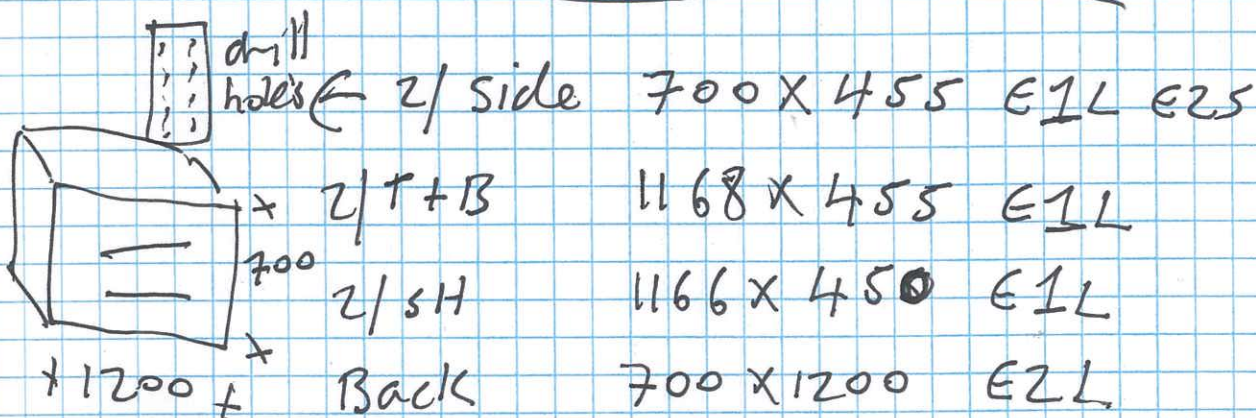 drill
holes ← 2/ Side 700 X 455 E1L E2S
2/ T + B 1168 X 455 E1L
700
2/ SH 1166 X 450 E1L
1200 Back 700 X 1200 E2L